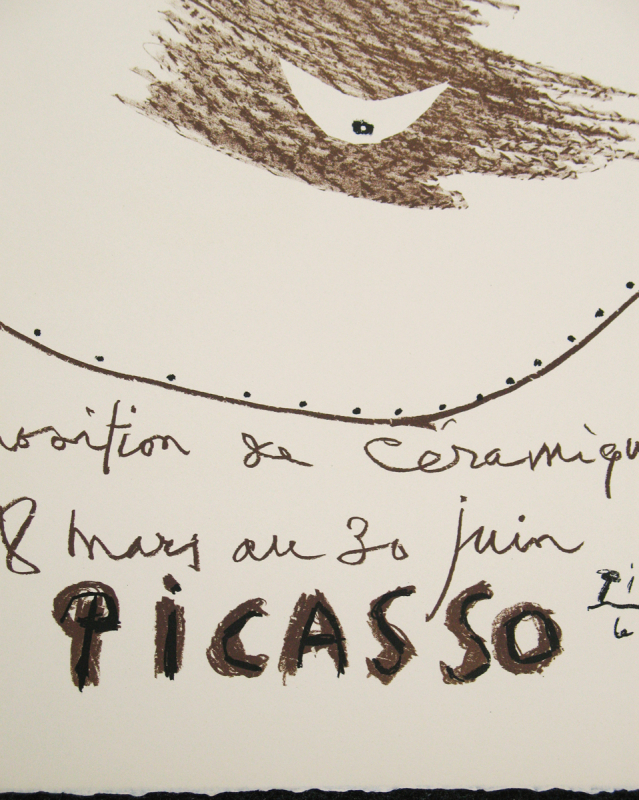 osition de céramiqu
8 mars au 30 juin
PiCASSO
Pi
le